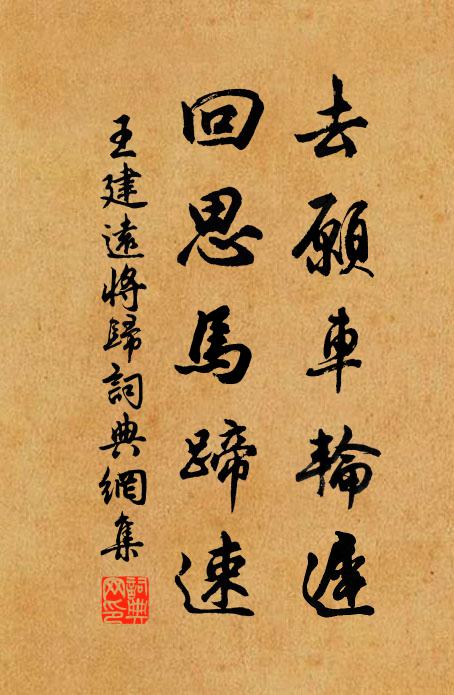 去願車輪遲
回思馬蹄速
王建遠將歸詞典網集
詞典網印